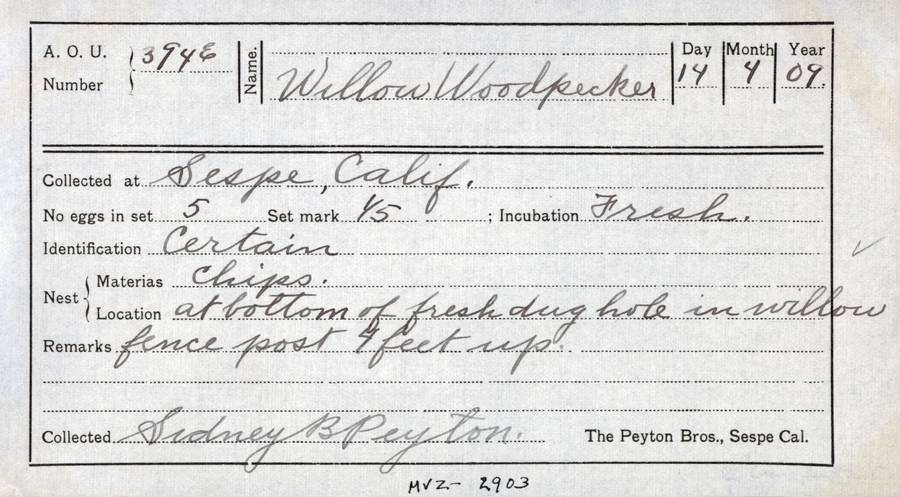 A. O. U. Number 394E Name. Willow Woodpecker Day 14 Month 4 Year 09.
Collected at Sespe, Calif.
No eggs in set 5 Set mark 1/5 ; Incubation Fresh.
Identification Certain
Nest Materias Chips.
Location at bottom of fresh dug hole in willow
Remarks fence post 4 feet up.
Collected Sidney B Peyton. The Peyton Bros., Sespe Cal.
MVZ- 2903